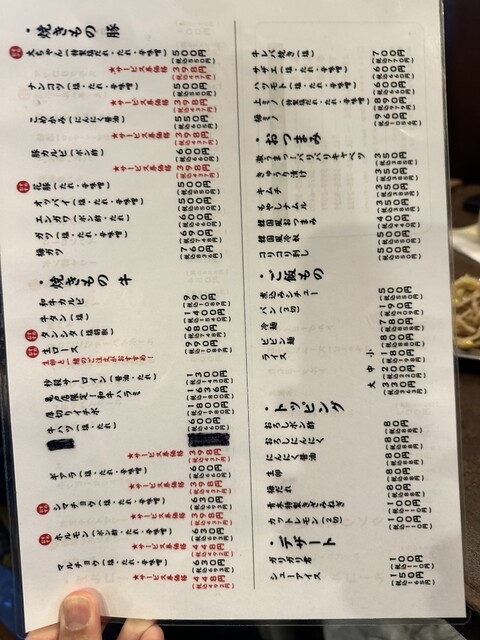 ・焼きもの 豚
大ちゃん(特製塩だれ・たれ・辛味噌) 500円
(税込550円)
★サービス券価格 398円
(税込437円)
ナンコツ(塩・たれ・辛味噌) 500円
(税込550円)
★サービス券価格 398円
(税込437円)
こめかみ(にんにく醤油) 550円
(税込605円)
★サービス券価格 398円
(税込437円)
豚カルビ(ポン酢) 600円
(税込660円)
★サービス券価格 398円
(税込437円)
花豚(たれ・辛味噌) 500円
(税込550円)
オッパイ(塩・たれ・辛味噌) 500円
(税込550円)
エンガワ(ポン酢・たれ) 600円
(税込660円)
ガツ(塩・たれ・辛味噌) 690円
(税込748円)
極ガツ 760円
(税込836円)
・焼きもの 牛
和牛カルビ 990円
(税込1089円)
牛タン(塩) 1400円
(税込1540円)
タンシタ(塩胡椒) 680円
(税込748円)
生ロース 990円
(税込1089円)
生卵と一緒のご注文がおすすめ!
炒程サーロイン(醤油・たれ) 1300円
亀有店限定!和牛ハラミ 1636円
厚切りイチボ 1800円
牛ハツ(塩・たれ) 600円
(税込660円)
★サービス券価格 398円
(税込437円)
ギアラ(塩・たれ・辛味噌) 600円
(税込660円)
★サービス券価格 398円
(税込437円)
シマチョウ(塩・たれ・辛味噌) 630円
(税込693円)
★サービス券価格 398円
(税込437円)
ホルモン(ポン酢・たれ・辛味噌) 630円
(税込693円)
★サービス券価格 448円
(税込492円)
マルチョウ(塩・たれ・辛味噌) 630円
(税込693円)
★サービス券価格 448円
(税込492円)
牛レバ焼き(塩) 700円
(税込770円)
サザエ(塩・たれ・辛味噌) 600円
(税込660円)
ハツモト(塩・たれ・辛味噌) 600円
(税込660円)
上ミノ(特製塩だれ・たれ・辛味噌) 890円
(税込979円)
極ミノ 960円
(税込1056円)
・おつまみ
激うま!パリパリキャベツ 350円
(税込385円)
きゅうり漬け 350円
(税込385円)
キムチ 350円
(税込385円)
もやしナムル 350円
(税込385円)
韓国風おつまみ 400円
(税込440円)
韓国風冷奴 500円
(税込550円)
コリコリ刺し 500円
(税込550円)
・ご飯もの
煮込みシチュー 500円
(税込550円)
パン(3切) 190円
(税込209円)
冷麺 780円
(税込858円)
ビビン麺 800円
(税込880円)
ライス 小 180円
(税込198円)
中 200円
(税込220円)
大 330円
(税込363円)
・トッピング
おろしポン酢 80円
(税込88円)
おろしにんにく 80円
(税込88円)
にんにく醤油 80円
(税込88円)
生卵 80円
(税込88円)
極だれ 80円
(税込88円)
青葱特製きざみねぎ 100円
(税込110円)
カットレモン(2切) 100円
(税込110円)
・デザート
ガリガリ君 100円
(税込110円)
シューアイス 150円
(税込165円)